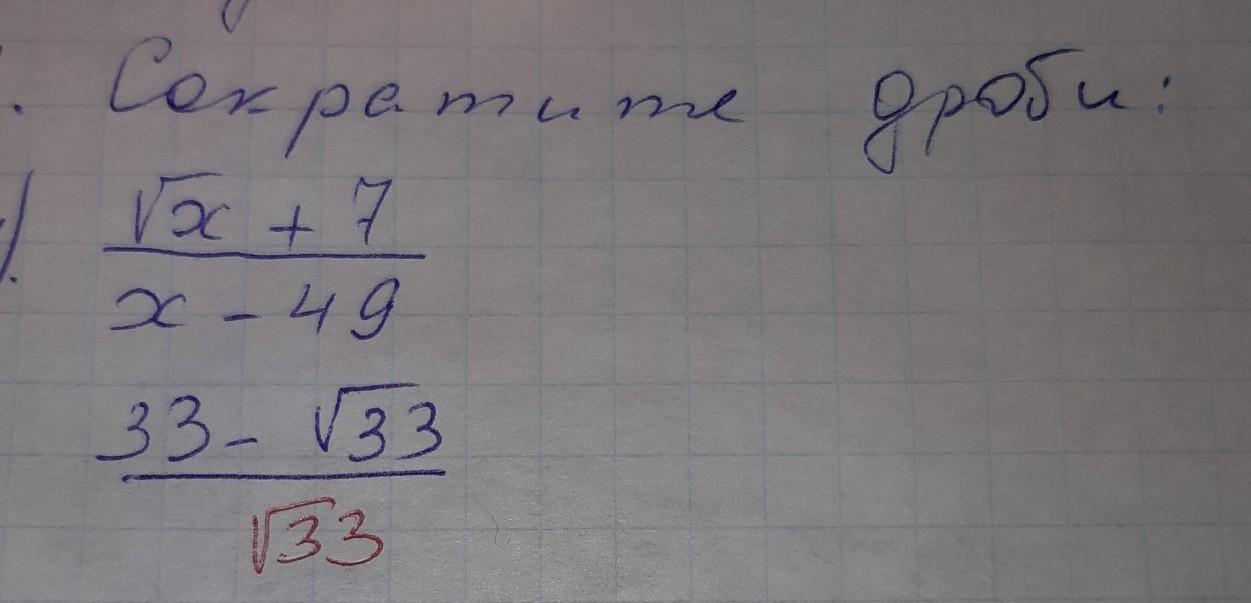 . Сократите дроби:
√x + 7
x - 49
33 - √33
√33